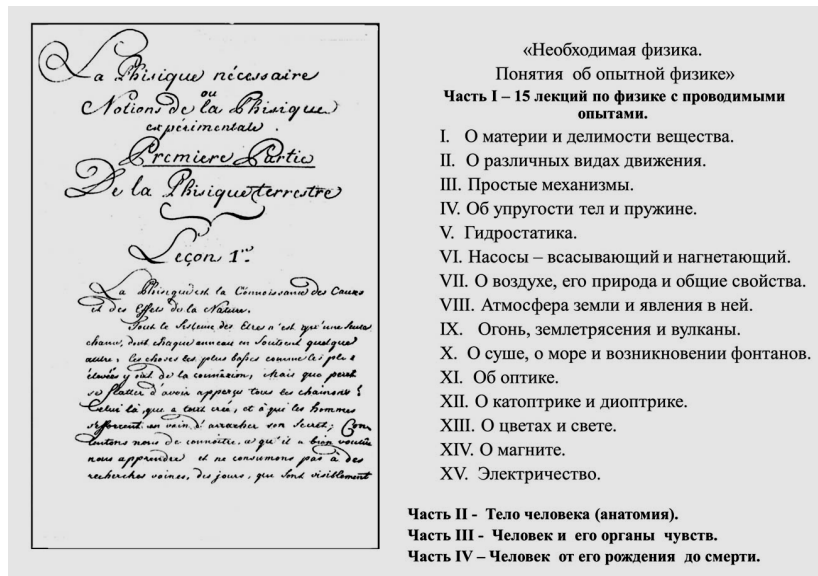 La Phisique nécessaire
ou
Notions de la Phisique
expérimentale.
Premiere Partie
De la Phisique terrestre
Leçon 1re.
La Phisique est la Connoissance des Causes
et des Effets de la Nature.
Tout le Sisteme des Etres n'est qu'une seule
chaine, dont chaque anneau en soutient quelque
autre, les choses les plus basses comme les plus
élevées y ont de la connexion, Mais qui peut
se flatter d'avoir apperçu tous les chainons ?
Celui là, que a tout créé, et à qui les hommes
s'efforcent en vain d'arracher son Secret; Con-
tentons nous de connoitre, ce qu'il a bien voulu
nous apprendre et ne consumons pas à des
recherches vaines, des jours, que sont visiblement
«Необходимая физика.
Понятия об опытной физике»
Часть I – 15 лекций по физике с проводимыми
опытами.
I. О материи и делимости вещества.
II. О различных видах движения.
III. Простые механизмы.
IV. Об упругости тел и пружине.
V. Гидростатика.
VI. Насосы – всасывающий и нагнетающий.
VII. О воздухе, его природа и общие свойства.
VIII. Атмосфера земли и явления в ней.
IX. Огонь, землетрясения и вулканы.
X. О суше, о море и возникновении фонтанов.
XI. Об оптике.
XII. О катоптрике и диоптрике.
XIII. О цветах и свете.
XIV. О магните.
XV. Электричество.
Часть II - Тело человека (анатомия).
Часть III - Человек и его органы чувств.
Часть IV – Человек от его рождения до смерти.